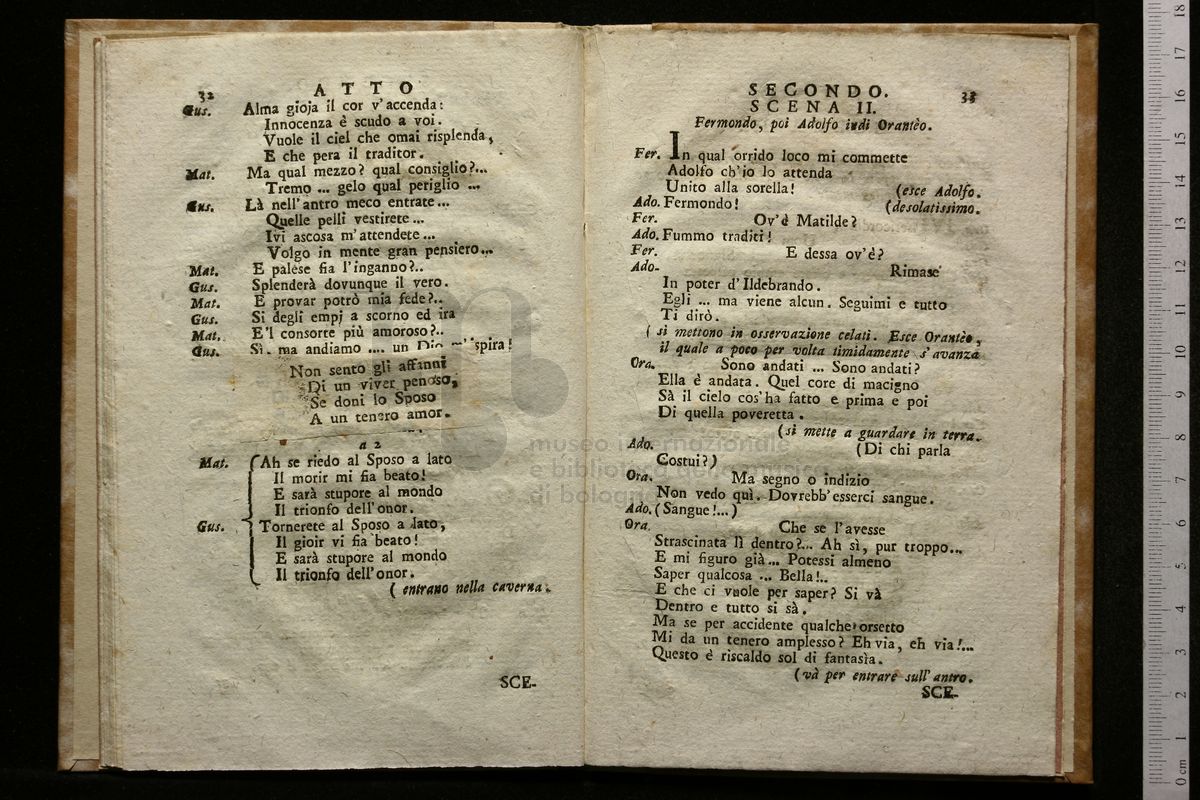 32 ATTO
Gus. Alma gioja il cor v'accenda:
Innocenza è scudo a voi.
Vuole il ciel che omai risplenda,
E che pera il traditor.
Mat. Ma qual mezzo? qual consiglio?...
Tremo ... gelo qual periglio ...
Gus. Là nell'antro meco entrate...
Quelle pelli vestirete...
Ivi ascosa m'attendete...
Volgo in mente gran pensiero...
Mat. E palese fia l'inganno?..
Gus. Splenderà dovunque il vero.
Mat. E provar potrò mia fede?..
Gus. Si degli empj a scorno ed ira
Mat. E'l consorte più amoroso?..
Gus. Sì. ma andiamo .... un Dio m'ispira!
Non sento gli affanni
Di un viver penoso,
Se doni lo Sposo
A un tenero amor.
a 2
Mat. Ah se riedo al Sposo a lato
Il morir mi fia beato!
E sarà stupore al mondo
Il trionfo dell'onor.
Gus. Tornerete al Sposo a lato,
Il gioir vi fia beato!
E sarà stupore al mondo
Il trionfo dell'onor.
( entrano nella caverna.
SCE-
SECONDO. 33
SCENA II.
Fermondo, poi Adolfo indi Orantèo.
Fer. In qual orrido loco mi commette
Adolfo ch'io lo attenda
Unito alla sorella! (esce Adolfo.
Ado. Fermondo! (desolatissimo.
Fer. Ov'è Matilde?
Ado. Fummo traditi!
Fer. E dessa ov'è?
Ado. Rimase
In poter d'Ildebrando.
Egli ... ma viene alcun. Seguimi e tutto
Ti dirò.
( si mettono in osservazione celati. Esce Orantèo,
il quale a poco per volta timidamente s'avanza
Ora. Sono andati ... Sono andati?
Ella è andata. Quel core di macigno
Sà il cielo cos'ha fatto e prima e poi
Di quella poveretta.
(si mette a guardare in terra.
Ado. (Di chi parla
Costui?)
Ora. Ma segno o indizio
Non vedo quì. Dovrebb'esserci sangue.
Ado. (Sangue!...)
Ora. Che se l'avesse
Strascinata lì dentro?... Ah sì, pur troppo...
E mi figuro già... Potessi almeno
Saper qualcosa ... Bella!..
E che ci vuole per saper? Si và
Dentro e tutto si sà.
Ma se per accidente qualche orsetto
Mi da un tenero amplesso? Eh via, eh via!...
Questo è riscaldo sol di fantasìa.
(và per entrare sull'antro.
SCE-
museo internazionale
e biblioteca della musica
di bologna
0 cm 1 2 3 4 5 6 7 8 9 10 11 12 13 14 15 16 17 18